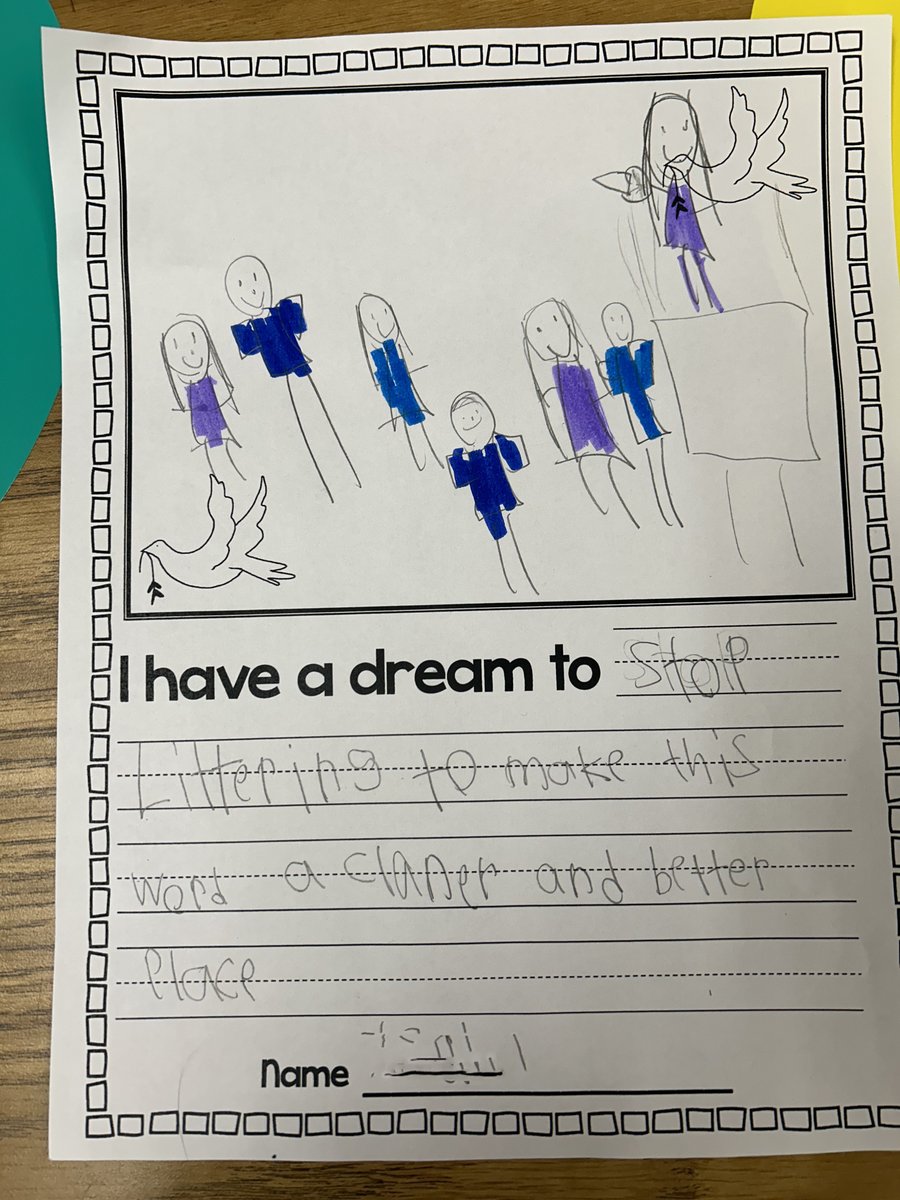 I have a dream to Stop
Littering to make this
word a claner and better
Place
Name